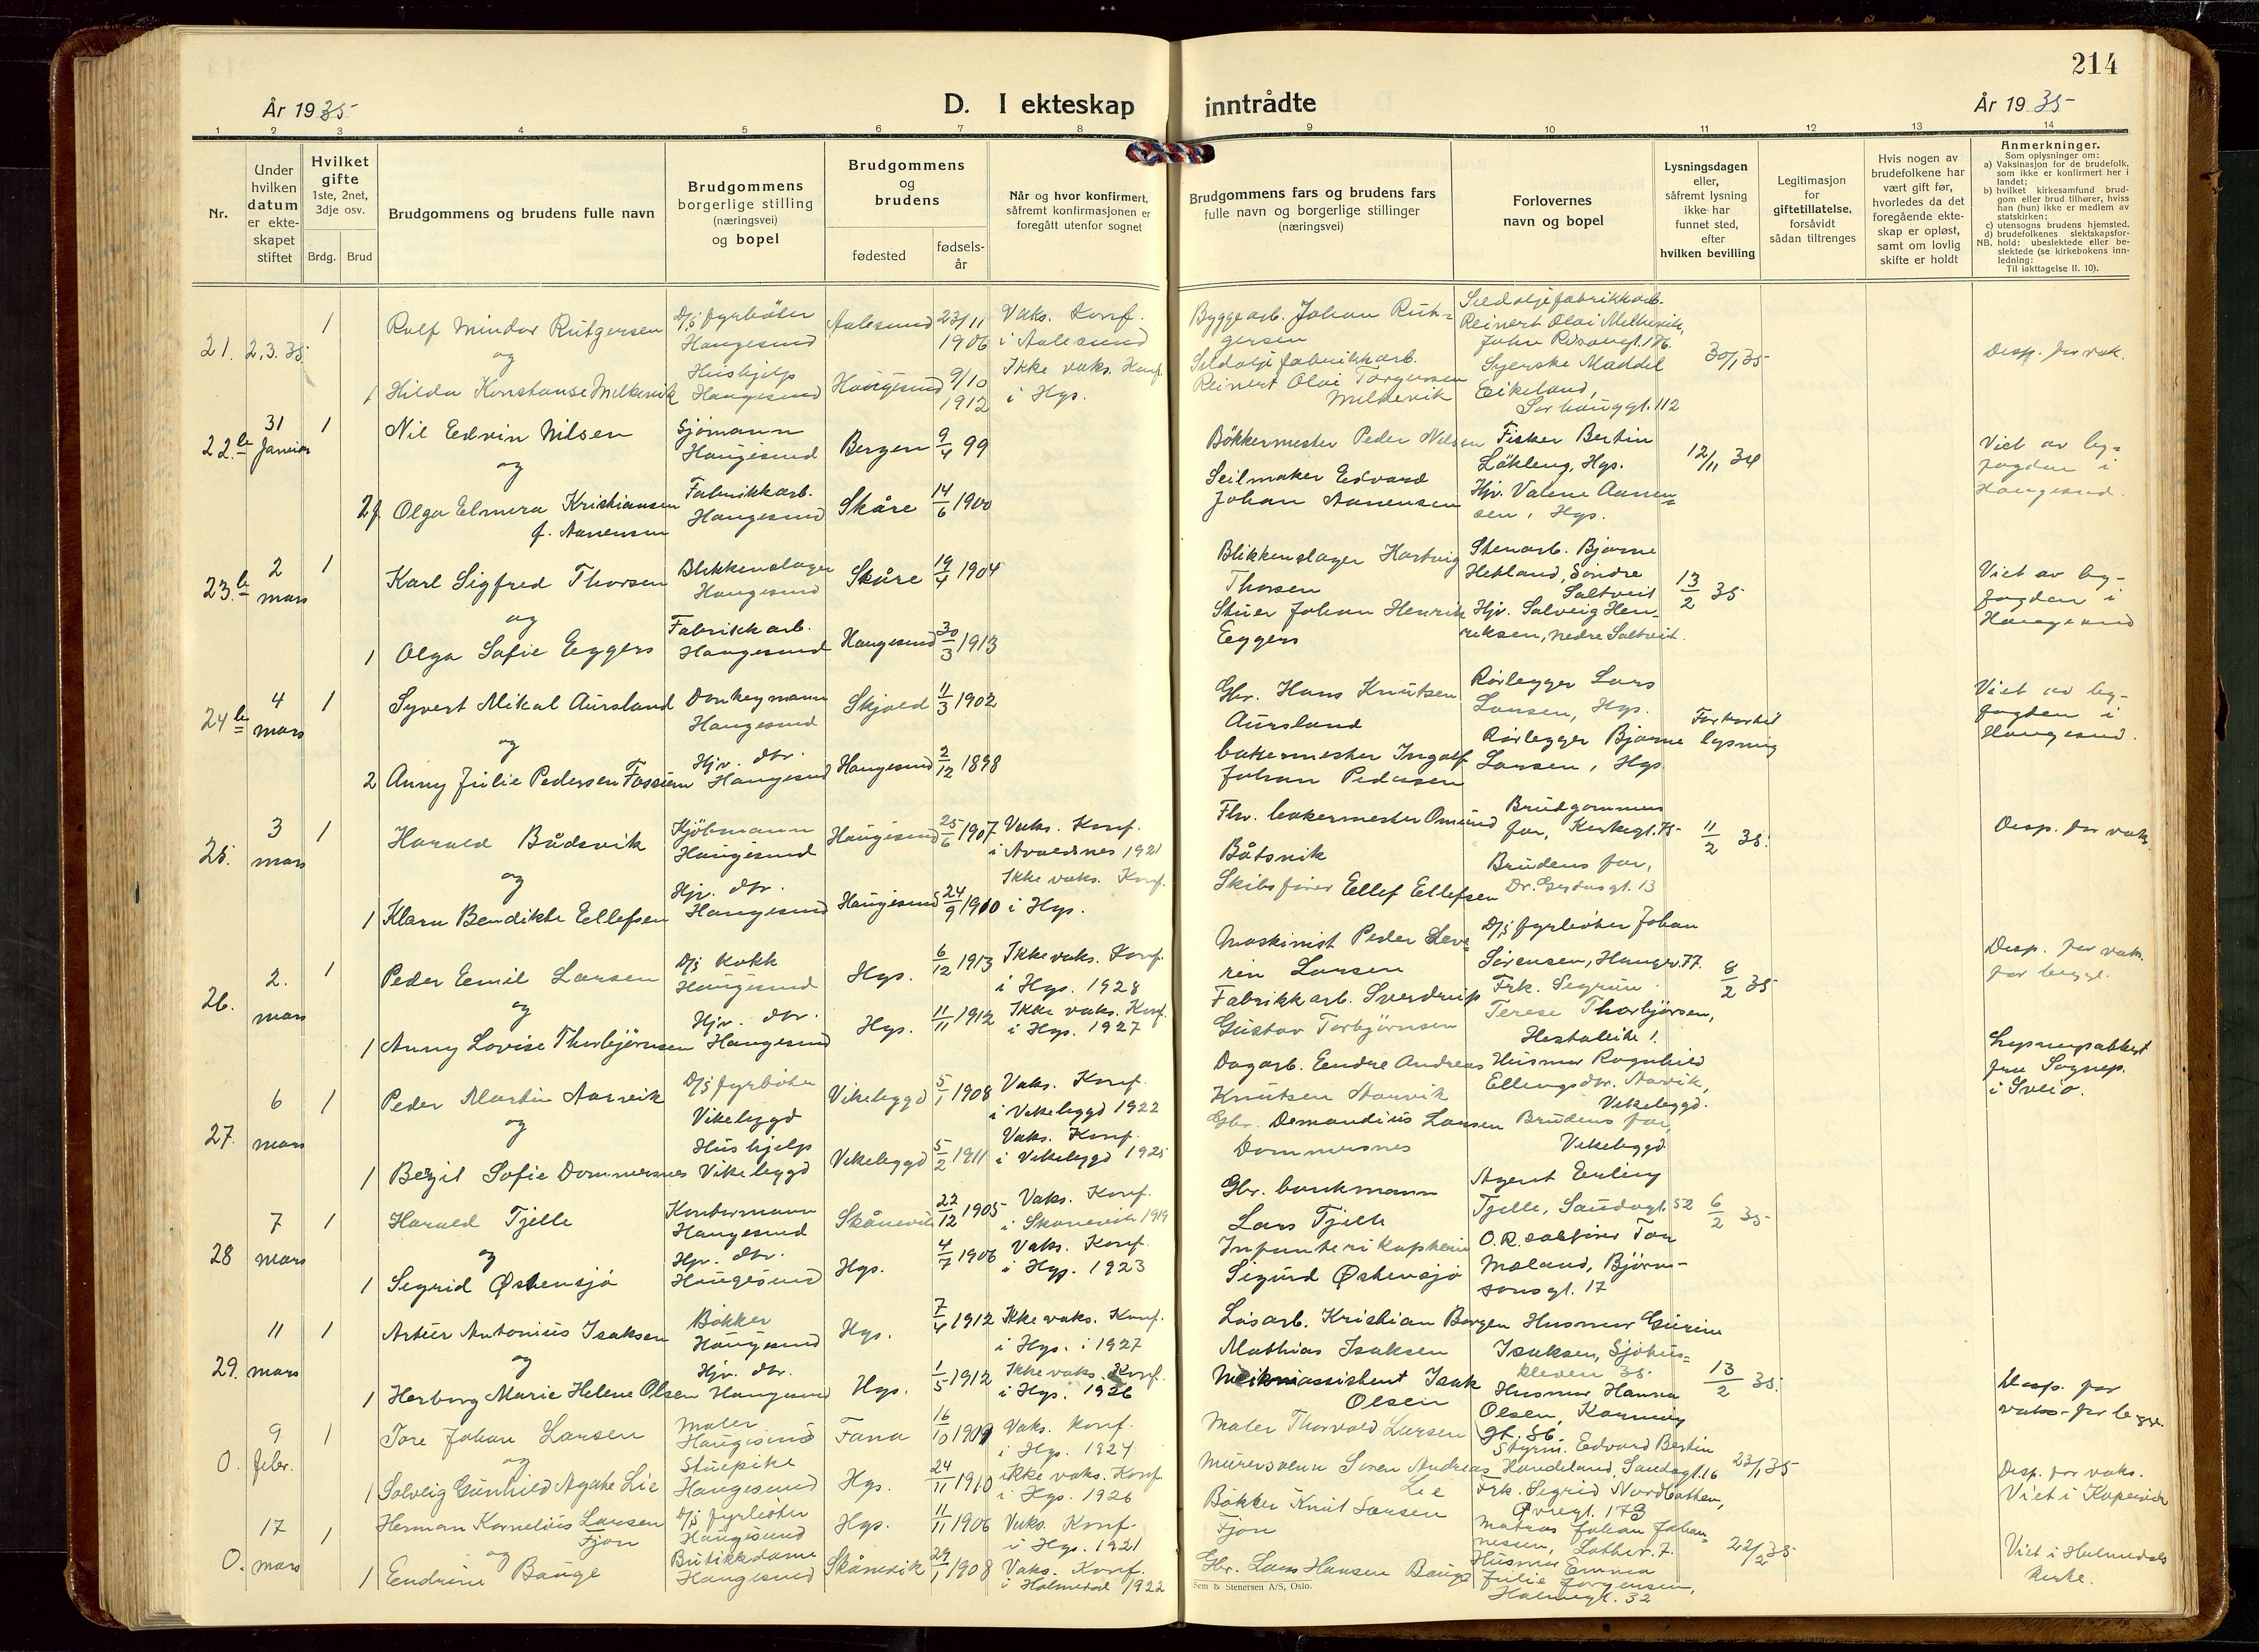 214
År 1935
D. I ekteskap inntrådte
År 1935
1 2 3 4 5 6 7 8 9 10 11 12 13 14
Nr.
Under hvilken datum er ekteskapet stiftet
Hvilket gifte 1ste, 2net, 3dje osv.
Brdg. Brud
Brudgommens og brudens fulle navn
Brudgommens borgerlige stilling (næringsvei) og bopel
Brudgommens og brudens
fødested
fødsels-år
Når og hvor konfirmert, såfremt konfirmasjonen er foregått utenfor sognet
Brudgommens fars og brudens fars fulle navn og borgerlige stillinger (næringsvei)
Forlovernes navn og bopel
Lysningsdagen eller, såfremt lysning ikke har funnet sted, efter hvilken bevilling
Legitimasjon for giftetillatelse, forsåvidt sådan tiltrenges
Hvis nogen av brudefolkene har vært gift før, hvorledes da det foregående ekteskap er opløst, samt om lovlig skifte er holdt
Anmerkninger.
Som oplysninger om:
a) Vaksinasjon for de brudefolk. som ikke er konfirmert her i landet;
b) hvilket kirkesamfund brudgom eller brud tilhører, hviss han (hun) ikke er medlem av statskirken;
c) utensogns brudens hjemsted.
d) brudefolkenes slektskapsforhold: ubeslektede eller beslektede (se kirkebokens innledning:
NB.
Til iakttagelse II. 10).
21. 2.3.35 1 Rolf Mindor Rutgersen D/s fyrbøter Haugesund Aalesund 23/11 1906 Vaks. Konf. i Aalesund
Byggearb. Johan Rutgersen
Sildoljefabrikkarb. Reinert Olai Melkevik,
30/1 35
Desp. for vak.
og
1 Hilda Konstanse Melkevik Hushjelp Haugesund Haugesund 9/10 1912 Ikke vaks. Konf. i Hgs.
Sildoljefabrikkarb. Reinert Olai Torgersen Melkevik
Syerske Maddel Eikeland, Sørhauggt. 112
22. 31 Januar 1 Nil Edvin Nilsen Sjømann Haugesund Bergen 9/4 99
Bøkkermester Peder Nilsen
Fisker Bertin Løkleng, Hgs.
12/11 34
Viet av byfogden i Haugesund.
og
2 f. Olga Elmera Kristiansen f. Aanensen Fabrikkarb. Haugesund Skåre 14/6 1900
Seilmaker Edvard Johan Aanensen
Hjv. Valene Aanensen, Hgs.
23. 2 mars 1 Karl Sigfred Thorsen Blikkenslager Haugesund Skåre 19/4 1904
Blikkenslager Hartvig Thorsen
Stenarb. Bjarne Hetland, Søndre Saltveit
13/2 35
Viet av byfogden i Haugesund
og
1 Olga Sofie Eggers Fabrikkarb. Haugesund Haugesund 30/3 1913
Stuer Johan Henrik Eggers
Hjv. Solveig Henriksen, nedre Saltveit.
24 4 mars 1 Syvert Mikal Aursland Donkeymann Haugesund Skjold 11/3 1902
Gbr. Hans Knutsen Aursland
Rørlegger Lars Larsen, Hgs.
Forkortet lysning
Viet av byfogden i Haugesund.
og
2 Anny Julie Pedersen Fossum Hjv. dtr. Haugesund Haugesund 2/12 1898
bakermester Ingolf Johan Pedersen
Rørlegger Bjarne Larsen, Hgs.
25. 3 mars 1 Harald Bådsvik Kjøbmann Haugesund Haugesund 25/6 1907 Vaks. Konf. i Avaldsnes 1921
Fhv. bakermester Omund Båtsvik
Brudgommens far, Kirkegt. 75
11/2 35.
Desp. for vaks.
og
1 Klara Bendikte Ellefsen Hjv. dtr. Haugesund Haugesund 24/9 1910 Ikke vaks. Konf. i Hgs.
Skibsfører Ellef Ellefsen
Brudens far, Dr. Gerdasgt. 13
26. 2. mars 1 Peder Emil Larsen D/s kokk Haugesund Hgs. 6/12 1913 Ikke vaks. Konf. i Hgs. 1928
Maskinist Peder Severin Larsen
D/s fyrbøter Johan Sørensen, Haugev. 77.
8/2 35
Desp. for vaks. for begge.
og
1 Anny Lovise Thorbjørnsen Hjv. dtr. Haugesund Hgs. 11/11 1912 Ikke vaks. Konf. i Hgs. 1927
Fabrikkarb. Sverdrup Gustav Torbjørnsen
Frk. Sigrun Terese Thorbjørsen, Hestaleite 1.
27. 6 mars 1 Peder Martin Aarvik D/s fyrbøter Vikebygd Vikebygd 5/1 1908 Vaks. Konf. i Vikebygd 1922
Dagarb. Endre Andreas Knutsen Aarvik
Husmor Ragnhild Ellingsdtr. Aarvik, Vikebygd.
Lysningsattest fra Sognep. i Sveio.
og
1 Bergit Sofie Dommersnes Hushjelp Vikebygd Vikebygd 5/2 1911 Vaks. Konf. i Vikebygd 1925
Gbr. Demandius Larsen Dommersnes
Brudens far, Vikebygd
28 7 mars 1 Harald Tjelle Kontormann Haugesund Skånevik 22/12 1905 Vaks. Konf. i Skånevik 1919
Gbr. bankmann Lars Tjelle
Agent Erling Tjelle, Sandvgt. 52
6/2 35
og
1 Sigrid Østensjø Hjv. dtr. Haugesund Hgs. 4/7 1906 Vaks. Konf. i Hgs. 1923
Infanterikaptein Sigurd Østensjø
O.R. saltfører Tor Mæland, Bjørnsonsgt. 17
29. 11 mars 1 Artur Antonius Isaksen Bøkker Haugesund Hgs. 7/4 1912 Ikke vaks. Konf. i Hgs. i 1927
Løsarb. Kristian Borgen Mathias Isaksen
Husmor Gurine Isaksen, Sjøhuskleven 35.
13/2 35.
Desp. for vaks. for begge.
og
1 Herborg Marie Helene Olsen Hjv. dtr. Haugesund Hgs. 1/5 1912 Ikke vaks. Konf. i Hgs. 1926
assistent Isak Olsen
Husmor Hanna Olsen, Karmøy gt. 86.
0. 9 febr. 1 Tore Johan Larsen Maler Haugesund Fana 16/10 1909 Vaks. konf. i Hgs. 1924
Maler Thorvald Larsen
Styrm. Edvard Bertin Handeland, Sandvgt. 16
23/1 35
Desp. for vaks. Viet i Kopervik
og
1 Solveig Gunhild Agate Lie Stuepike Haugesund Hgs. 24/11 1910 ikke vaks. Konf. i Hgs. 1926
Murersvenn Søren Andreas Lie
Frk. Sigrid Nordbotten, Øvregt. 173
0. 17 mars 1 Herman Kornelius Larsen Fjon D/s fyrbøter Haugesund Hgs. 11/11 1906 Vaks. Konf. i Hgs. 1921
Bøkker Knut Larsen Fjon
Matros Johan Johannessen, Lother. 7.
22/2 35
Viet i Holmedals kirke.
og
1 Endrine Bauge Butikkdame Haugesund Skånevik 29/1 1908 Vaks. Konf. i Holmedal 1922
Gbr. Lars Hansen Bauge
Husmor Emma Julie Jørgensen, Holmegt. 32
Sem & Stenersen A/S, Oslo.